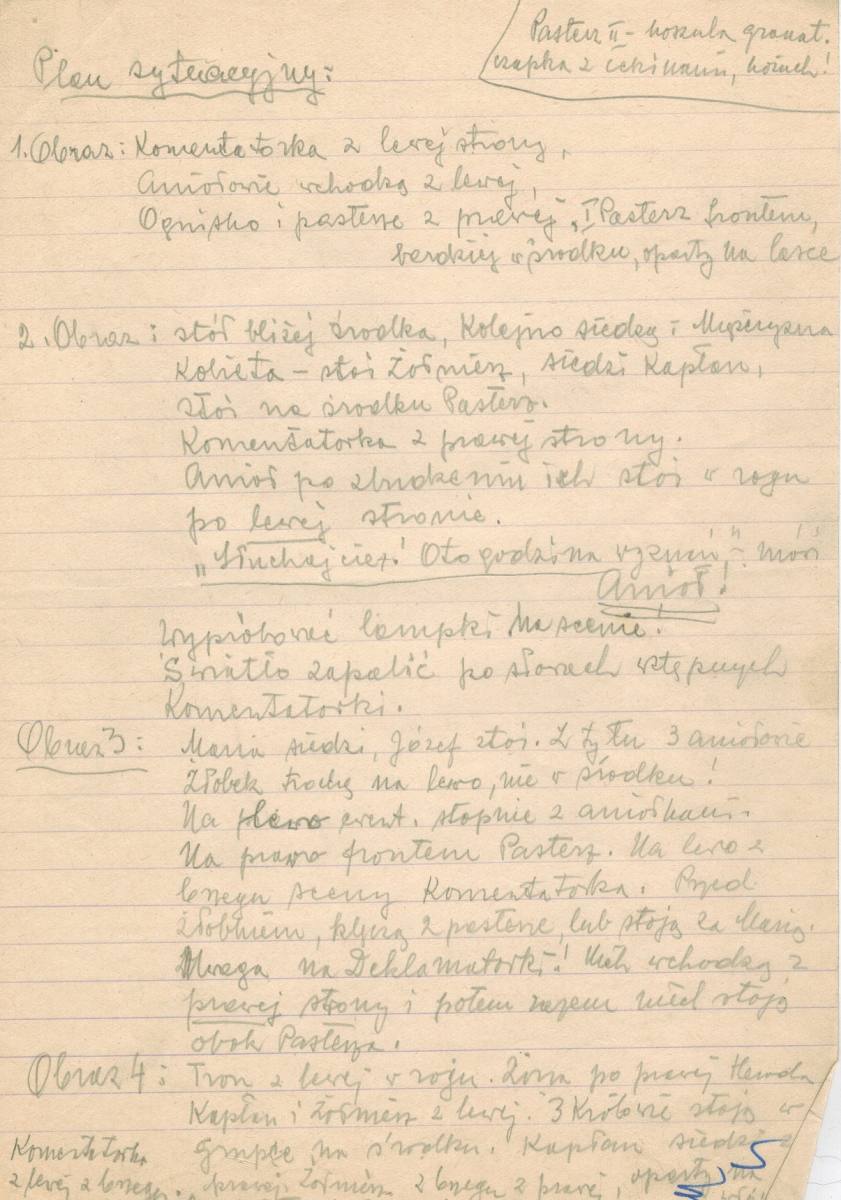 Pasterz II - koszula granat.
czapka z cekinami, kożuch!
Plan sytuacyjny:
1. Obraz: Komentatorka z lewej strony,
Aniołowie wchodzą z lewej,
Ognisko i pasterze z prawej, I Pasterz frontem,
bardziej w środku, oparty na lasce
2. Obraz: stół bliżej środka, Kolejno siedzą: Mężczyzna
Kobieta - stoi Żołnierz, siedzi Kapłan,
stoi na środku Pasterz.
Komentatorka z prawej strony.
Anioł po zbudzeniu ich stoi w rogu
po lewej stronie.
„Słuchajcież! Oto godzina wyznań," - mówi
Anioł!
Wypróbować lampki na scenie!
Światło zapalić po słowach wstępnych
Komentatorki.
Obraz 3: Maria siedzi, Józef stoi. Z tyłu 3 aniołowie
Żłobek trochę na lewo, nie w środku!
Na lewo ewent. stopnie z aniołkami.
Na prawo frontem Pasterz. Na lewo z
brzegu sceny Komentatorka. Przed
żłobkiem, klęczą 2 pasterze, lub stoją za Marią.
Uwaga na Deklamatorki! Niech wchodzą z
prawej strony i potem razem niech stoją
obok Pasterza.
Obraz 4: Tron z lewej w rogu. Żona po prawej Heroda
Kapłan i Żołnierz z lewej. 3 Królowie stoją w
grupce na środku. Kapłan siedzi z
Komentatorka
z lewej z brzegu. prawej Żołnierz z brzegu z prawej, oparty na